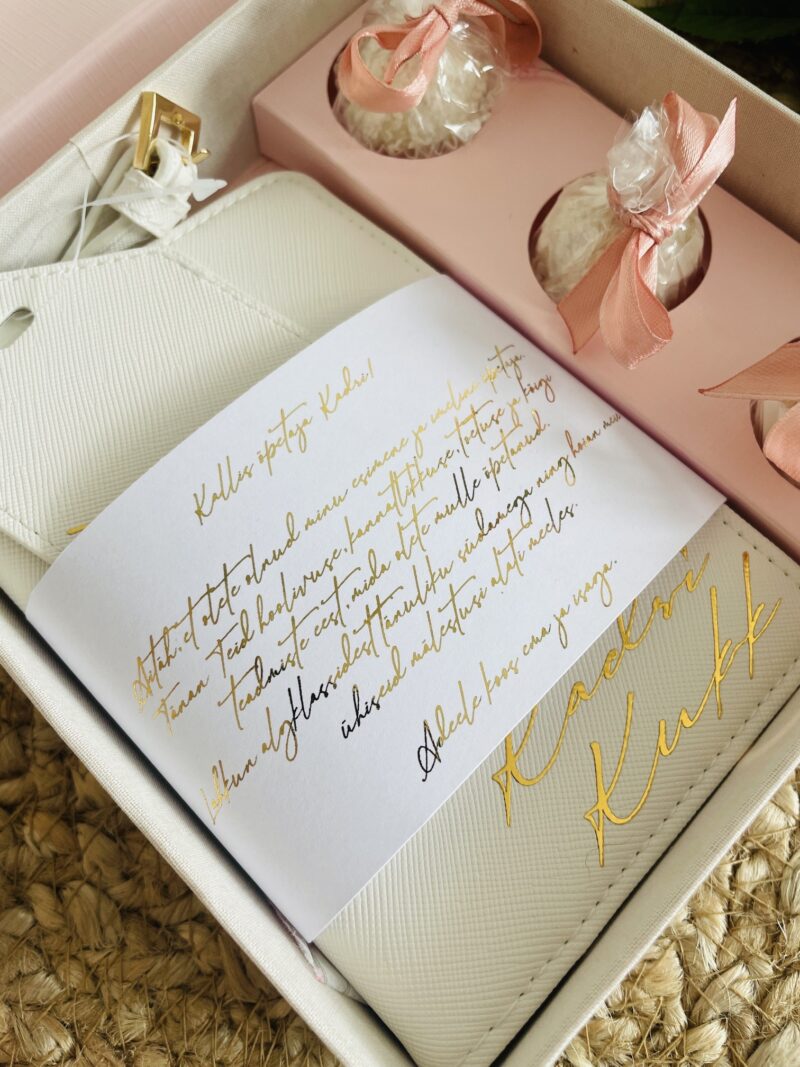 Kallis õpetaja Kadri!
Aitäh, et olete olnud minu esimene ja imeline õpetaja.
Tänan Teid hoolivuse, kannatlikkuse, toetuse ja kõigi
teadmiste eest, mida olete mulle õpetanud.
Lahkun algklassidest tänuliku südamega ning hoian meie
ühiseid mälestusi alati meeles.
Adeele koos ema ja isaga.
Kadri
Kukk